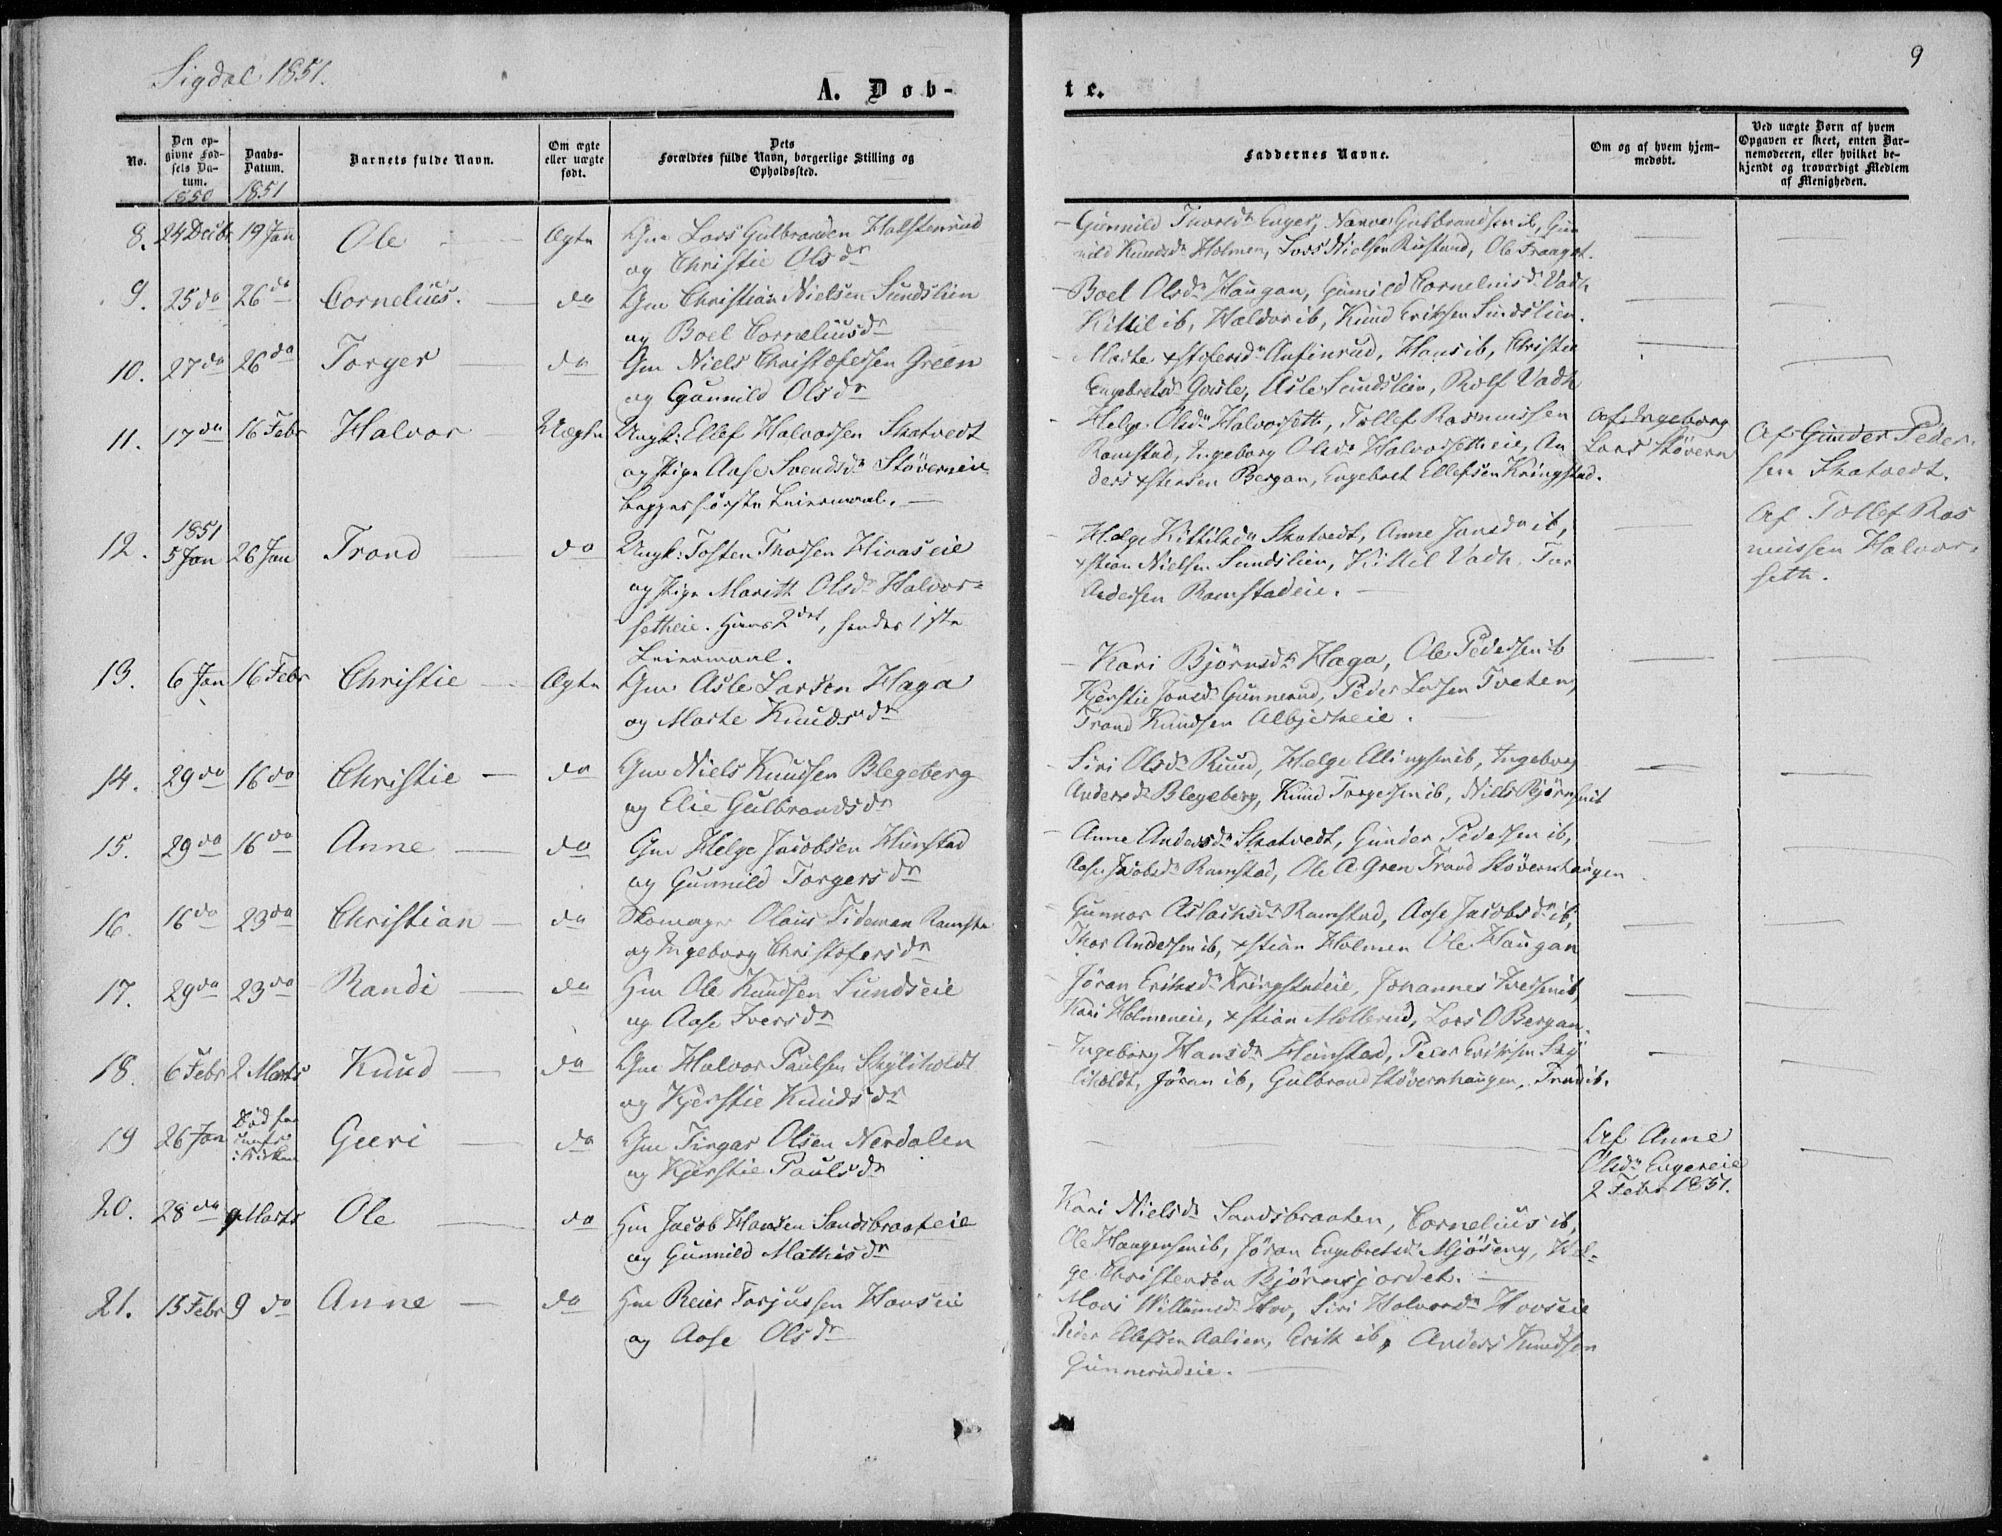 Sigdal 1851.
9
A. Døb-
te.
No.
Den op-
givne Fød-
sels Da-
tum.
1850
Daabs-
Datum.
1851
Barnets fulde Navn.
Om ægte
eller uægte
født.
Dets
Forældres fulde Navn, borgerlige Stilling og
Opholdssted.
Faddernes Navne.
Om og af hvem hjem-
medøbt.
Ved uægte Børn af hvem
Opgaven er skeet, enten Bar-
nemoderen, eller hvilket be-
kjendt og troværdigt Medlem
af Menigheden.
8. 24 Decbr 19 Jan Ole Ægte Gm Lars Gulbransen Halstenrud
og Christie Olsdr
Gunnild Thorsdr Enger, Narve Gulbrandsen ib, Gun
nild Knudsdr Holmen, Lars Nielsen Rustand, Ole Fraaget.
9. 25 do 26 do Cornelius. do Gm Christian Nielsen Sundslien
og Boel Corneliusdr
Boel Olsdr Haugan, Gunild Corneliusdr Vadh
Kittil ib, Haldor ib, Knud Eriksen Sundslien.
10. 27 do 26 do Torger do Gm Niels Christofersen Green
og Gunnild Olsdr
Marte Xstofersdr Anfinrud, Hans ib, Christie
Engebretsdr Gasle, Asle Sundslien, Rolf Vadh
11. 17 do 16 Febr Halvor Uægte Ungk: Ellef Halvorsen Skatvedt
og Pige Aase Svendsdr Støverneie
begges første Leiermaal.
Helge Olsdr Halvorseth, Tollef Rasmussen
Ramstad, Ingeborg Olsdr Halvorsetheie, An
ders Xstensen Bergan, Engebret Ellefsen Kringstad.
Af Ingeborg
Lars Støvern
Af Gunder Peder-
sen Skatvedt.
12. 1851
5 Jan 26 Jan Trond do Ungk: Tosten Thorsen Hivaseie
og Pige Maritt Olsdr Halvor-
setheie. Hans 2det, hendes 1ste
Leiermaal.
Helge Kittilsdr Skatvedt, Anne Jonsdr ib,
Xstian Nielsen Sundslien, Kittil Vadh, Tor
Andersen Ramstadeie.
Af Tollef Ras
mussen Halvor-
seth.
13. 6 Jan 16 Febr Christie Ægte Gm Asle Larsen Haga
og Marte Knudsdr
Kari Bjørnsdr Haga, Ole Pedersen ib
Kjerstie Jonsdr Gunnerud, Peder Larsen Tveten,
Trond Knudsen Albjerkeie.
14. 29 do 16 do Christie do Gm Niels Knudsen Blegeberg
og Elie Gulbrandsdr
Siri Olsdr Ruud, Helge Ellingsen ib, Ingeborg
Andersdr Blegeberg, Knud Torgersen ib, Nills Bjørnsen ib
15. 29 do 16 do Anne do Gm Helge Jacobsen Hunstad
og Gunnild Torgersdr
Anne Andersdr Skatvedt, Gunder Pedersen ib,
Aase Jacobsdr Ramstad, Ole A Gren Trond Støvernhaugen
16. 16 do 23 do Christian do Skomager Olaus Tideman Ramsta
og Ingeborg Christofersdr
Gunnor Aslaksdr Ramstad, Aase Jacobsdr ib,
Thor Andersen ib, Xstian Holmen Ole Haugan
17. 29 do 23 do Randi do Hm Ole Knudsen Sundseie
og Aase Iversdr
Jøran Eriksdr Kringstadeie, Johannes Iversen ib,
Kari Holmeneie, Xstian Mollerud, Lars O Bergan.
18. 6 Febr 2 Marts Knud do Gm Halvor Paulsen Skyliholdt
og Kjerstie Knudsdr
Ingeborg Hansdr Hunstad, Peder Eriksen Sky
liholdt, Jøran ib, Gulbrand Støvernhaugen, Trond ib.
19 26 Jan Død før
i Kirken Guri do Gm Torgar Olsen Nerdalen
og Kjerstie Paulsdr
Af Anne
Olsdr Engereie
2 Febr 1851.
20. 28 do 9 Marts Ole do Hm Jacob Hansen Sandsbraateie
og Gunnild Mathisdr
Kari Nielsdr Sandsbraaten, Cornelius ib,
Ole Haagensen ib, Jøran Engebretsdr Mjøseng, Hel-
ge Christensen Bjørnsjordet.
21. 15 Febr 9 do Anne do Hm Reier Torjussen Hovseie
og Aase Olsdr
Mari Willumsdr Hov, Siri Halvorsdr Hovseie
Peder Olefsen Aalien, Erik ib, Anders Knudsen
Gunnerudeie.